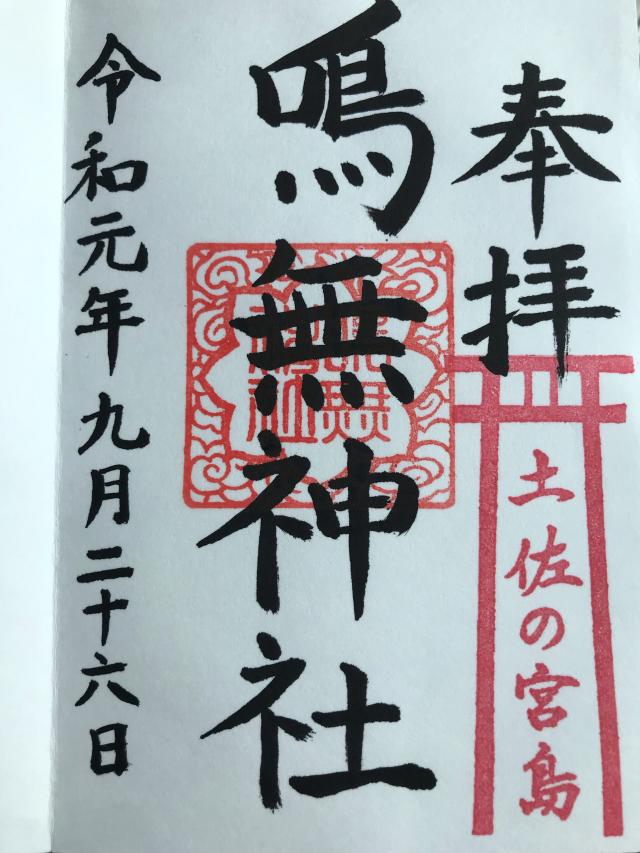 奉拝
土佐の宮島
鳴無神社
令和元年九月二十六日